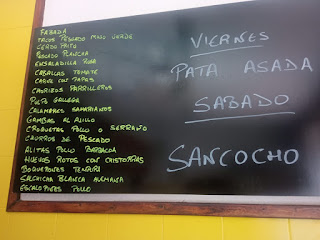 FABADA
TACOS PESCADO MOJO VERDE
CERDO FRITO
PESCADO PLANCHA
ENSALADILLA RUSA
CABALLAS TOMATE
CARNE CON PAPAS
CHORIZOS PARRILLEROS
PULPO GALLEGA
CALAMARES SAHARIANOS
GAMBAS AL AJILLO
CROQUETAS POLLO O SERRANO
CHURROS DE PESCADO
ALITAS POLLO BARBACOA
HUEVOS ROTOS CON CHISTORRAS
BOQUERONES TEMPURA
SALCHICHA BLANCA ALEMANA
ESCALOPINES POLLO
VIERNES
PATA ASADA
SABADO
SANCOCHO